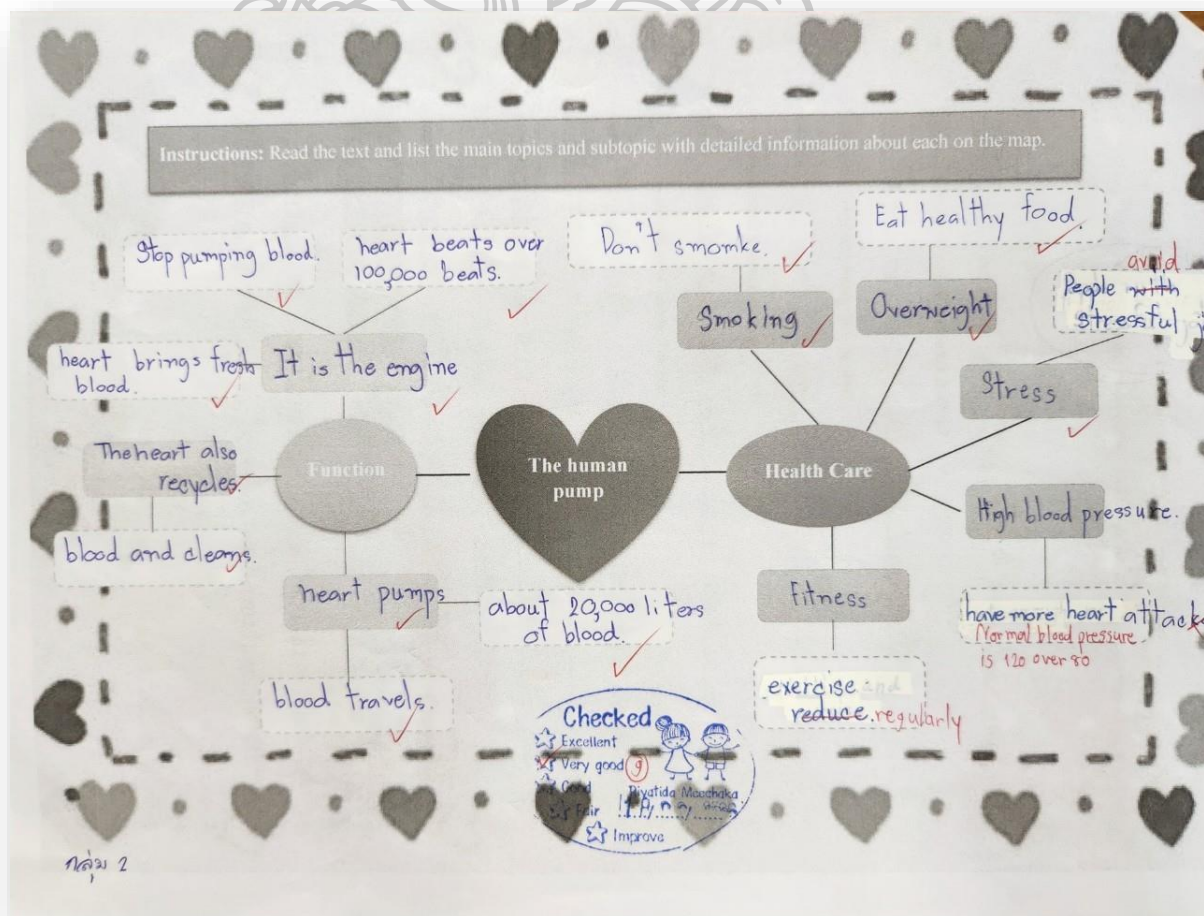 Instructions: Read the text and list the main topics and subtopic with detailed information about each on the map.
Stop pumping blood.
heart beats over
100,000 beats.
Don't smomke.
Eat healthy food.
avoid
People with
stressful
Smoking
Overweight
heart brings fresh
blood.
It is the engine
Stress
The heart also
recycles.
Function
The human
pump
Health Care
High blood pressure.
blood and cleans.
heart pumps
about 20,000 liters
of blood.
Fitness
have more heart attack
Normal blood pressure
is 120 over 80
blood travels.
exercise and
reduce. regularly
Checked
Excellent
Very good 9
Good
Piyatida Meechaka
Fair
Improve
กลุ่ม 2